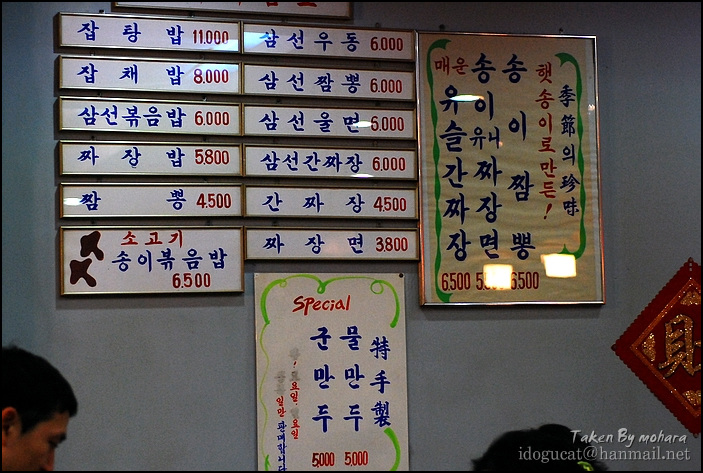 잡탕밥 11.000
잡채밥 8.000
삼선볶음밥 6.000
짜장밥 5.800
짬뽕 4.500
소고기
송이볶음밥
6.500
삼선우동 6.000
삼선짬뽕 6.000
삼선울면 6.000
삼선간짜장 6.000
간짜장 4.500
짜장면 3.800
季節의 珍味
햇송이로 만든!
송이짬뽕
송이유니짜장면
매운 유슬간짜장
6.500
6.500
Special
特手製
물만두 5,000
군만두 5,000
Taken By mohara
idogucat@hanmail.net